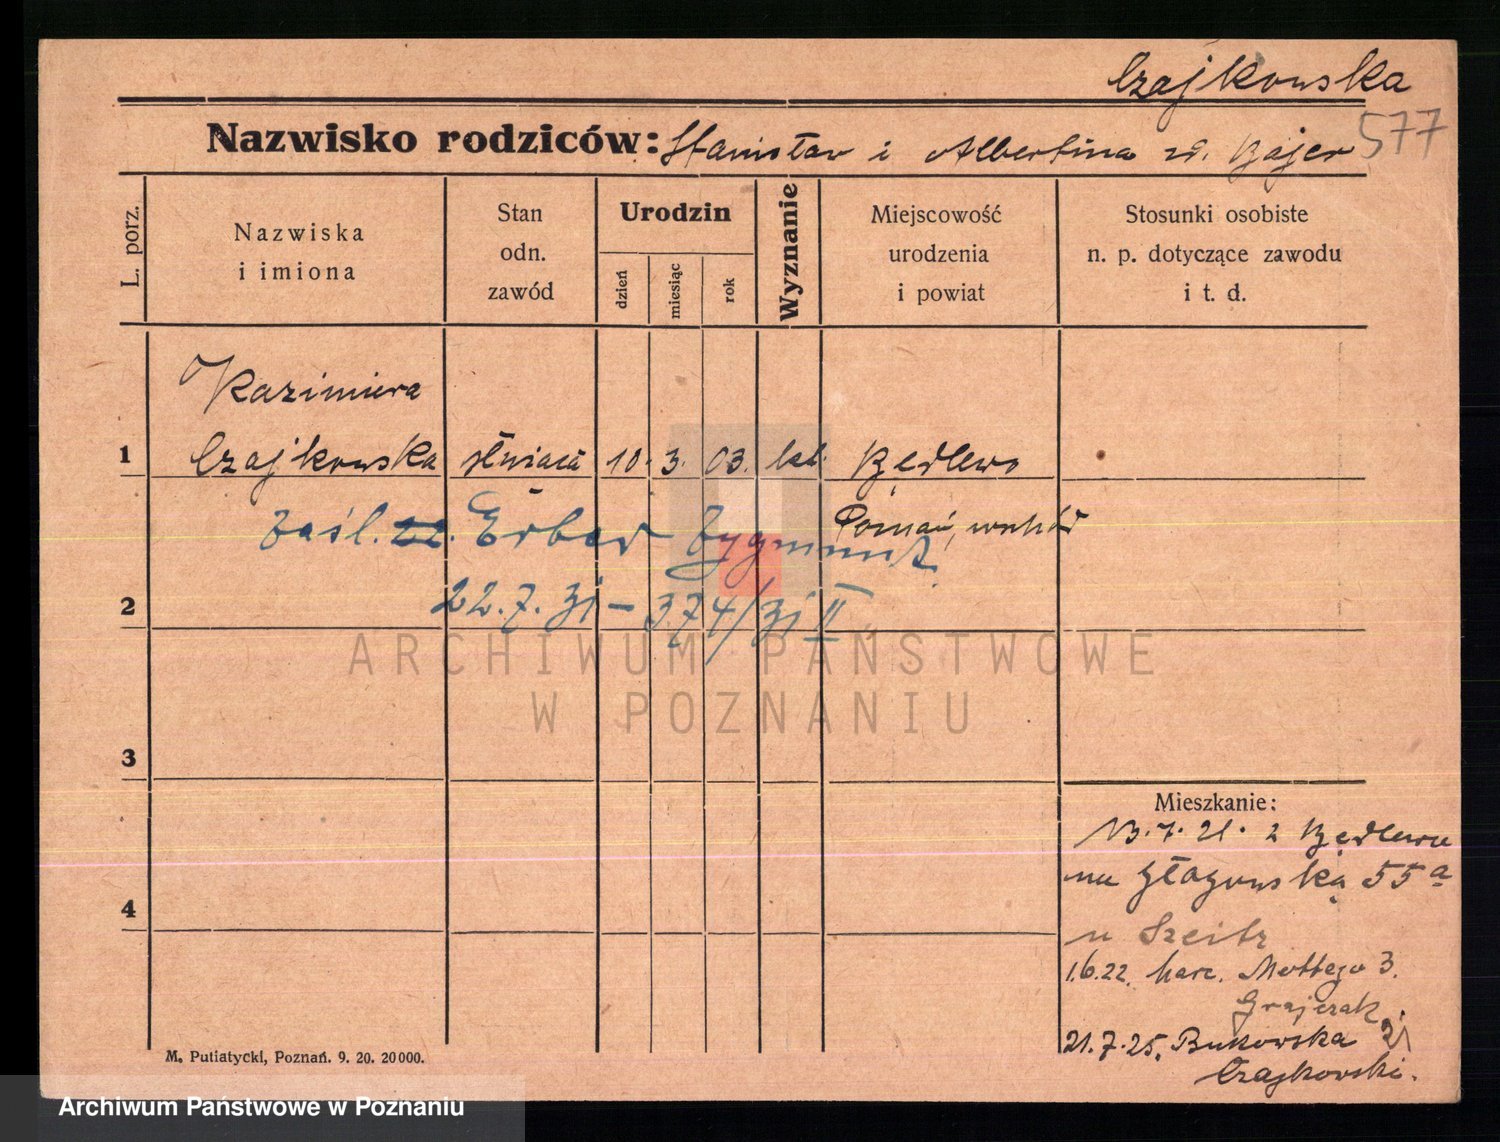 Czajkowska
577
Nazwisko rodziców: Stanisław i Albertina zd. Bajer
L. porz.
Nazwiska i imiona
Stan odn. zawód
Urodzin
dzień
miesiąc
rok
Wyznanie
Miejscowość urodzenia i powiat
Stosunki osobiste n. p. dotyczące zawodu i t. d.
Kazimiera
1 Czajkowska służąca 10. 3. 03. kat. Będlewo
zaśl. Erber Zygmunt Poznań,
2 22.7.31 – 374/31 II
3
4
Mieszkanie:
13.7.21. z Będlewa
na Głogowską 55a
u Szeitz
1.6.22. Marc. Mottego 3.
Grajczak
21.7.25. Bukowska 21
Czajkowski.
M. Putiatycki, Poznań. 9. 20. 20000.
ARCHIWUM PAŃSTWOWE
W POZNANIU
Archiwum Państwowe w Poznaniu